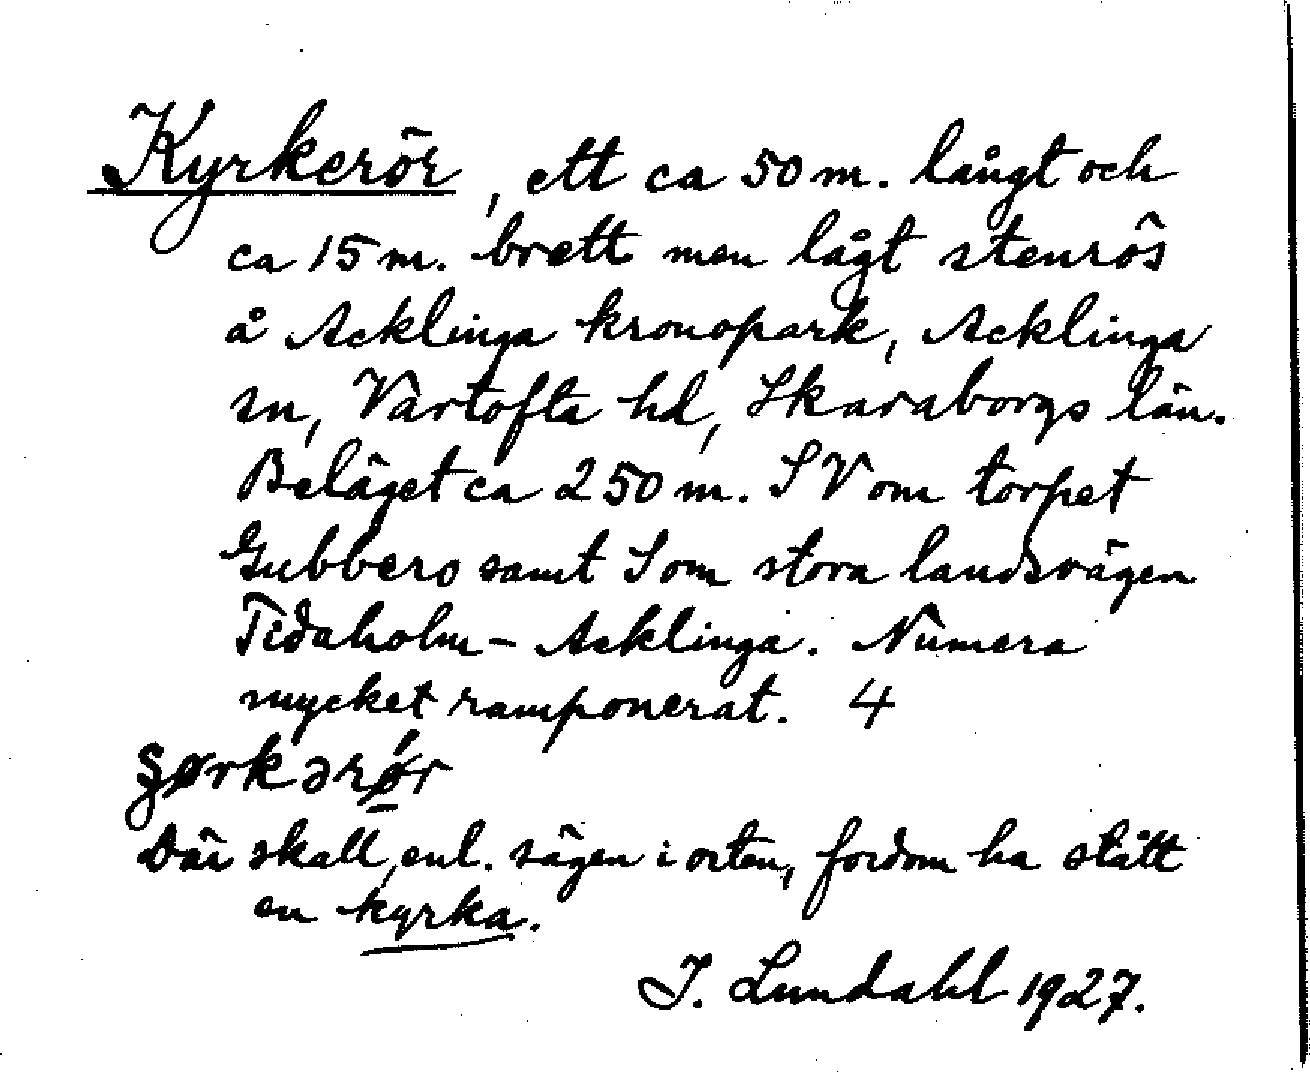 Kyrkerör, ett ca 50 m. långt och
ca 15 m. brett men lågt stenrös
å Acklinga kronopark, Acklinga
sn, Vartofta hd, Skaraborgs län.
Beläget ca 250 m. SV om torpet
Gubbero samt S om stora landsvägen
Tidaholm - Acklinga. Numera
mycket ramponerat. 4
ʂørkərǿr
Där skall, enl. sägen i orten, fordom ha stått
en kyrka.
I. Lundahl 1927.